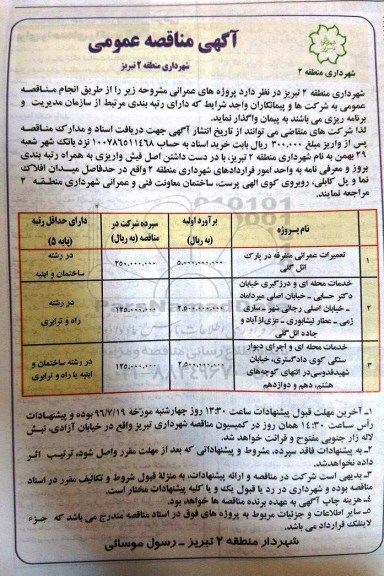 آگهی مناقصه عمومی
شهرداری منطقه ۲ تبریز
شهرداری منطقه ۲
شهرداری منطقه ۲ تبریز در نظر دارد پروژه های عمرانی مشروحه زیر را از طریق انجام مناقصه
عمومی به شرکت ها و پیمانکاران واجد شرایط که دارای رتبه بندی مرتبط از سازمان مدیریت و
برنامه ریزی می باشند به پیمان واگذار نماید.
لذا شرکت های متقاضی می توانند از تاریخ انتشار آگهی جهت دریافت اسناد و مدارک مناقصه
پس از واریز مبلغ ۳۰۰.۰۰۰ ریال بابت خرید اسناد به حساب ۱۰۰۷۸۶۵۱۱۴۶۸ نزد بانک شهر شعبه
۲۹ بهمن به نام شهرداری منطقه ۲ تبریز، با در دست داشتن اصل فیش واریزی به همراه رتبه بندی
بروز و معرفی نامه به واحد امور قراردادهای شهرداری منطقه ۲ واقع در حدفاصل میدان افلاک
نما و پل کابلی، روبروی کوی الهی پرست، ساختمان معاونت فنی و عمرانی شهرداری منطقه ۲
مراجعه نمایند.
نام پروژه
برآورد اولیه (به ریال)
سپرده شرکت در مناقصه (به ریال)
دارای حداقل رتبه (پایه ۵)
۱
تعمیرات عمرانی متفرقه در پارک
ائل گلی
۵.۰۰۰.۰۰۰.۰۰۰
۲۵۰.۰۰۰.۰۰۰
در رشته
ساختمان و ابنیه
۲
خدمات محله ای و درزگیری خیابان
دکتر حسابی - خیابان اصلی میرداماد
- خیابان اصلی رجائی شهر - ساری
زمی - عطار نیشابوری - عزی‌آباد و
جاده ائل گلی
۲.۵۰۰.۰۰۰.۰۰۰
۱۲۵.۰۰۰.۰۰۰
در رشته
راه و ترابری
۳
خدمات محله ای و اجرای دیوار
سنگی کوی دادگستری، خیابان
شهیدقدوسی در انتهای کوچه‌های
هشتم، دهم و دوازدهم
۲.۵۰۰.۰۰۰.۰۰۰
۱۲۵.۰۰۰.۰۰۰
در رشته ساختمان و
ابنیه یا راه و ترابری
۱ـ آخرین مهلت قبول پیشنهادات ساعت ۱۳:۳۰ روز چهارشنبه مورخه ۹۶/۷/۱۹ بوده و پیشنهادات
رأس ساعت ۱۴:۳۰ همان روز در کمیسیون مناقصه شهرداری تبریز واقع در خیابان آزادی، نبش
لاله زار جنوبی مفتوح و قرائت خواهد شد.
۲ـ به پیشنهادات فاقد سپرده، مشروط و پیشنهاداتی که بعد از مهلت مقرر واصل شود، ترتیب اثر
داده نخواهدشد.
۳ـ بدیهی است شرکت در مناقصه و ارائه پیشنهادات، به منزلهٔ قبول شروط و تکالیف مقرر در اسناد
مناقصه بوده و شهرداری در رد یا قبول یک و یا کلیه پیشنهادات مختار است.
۴ـ هزینه چاپ آگهی به عهده برنده مناقصه ها خواهد بود.
۵ـ سایر اطلاعات و جزئیات مربوط به پروژه های فوق در اسناد مناقصه مندرج می باشد که جزء
لاینفک قرارداد می باشد.
شهردار منطقه ۲ تبریز - رسول موسائی